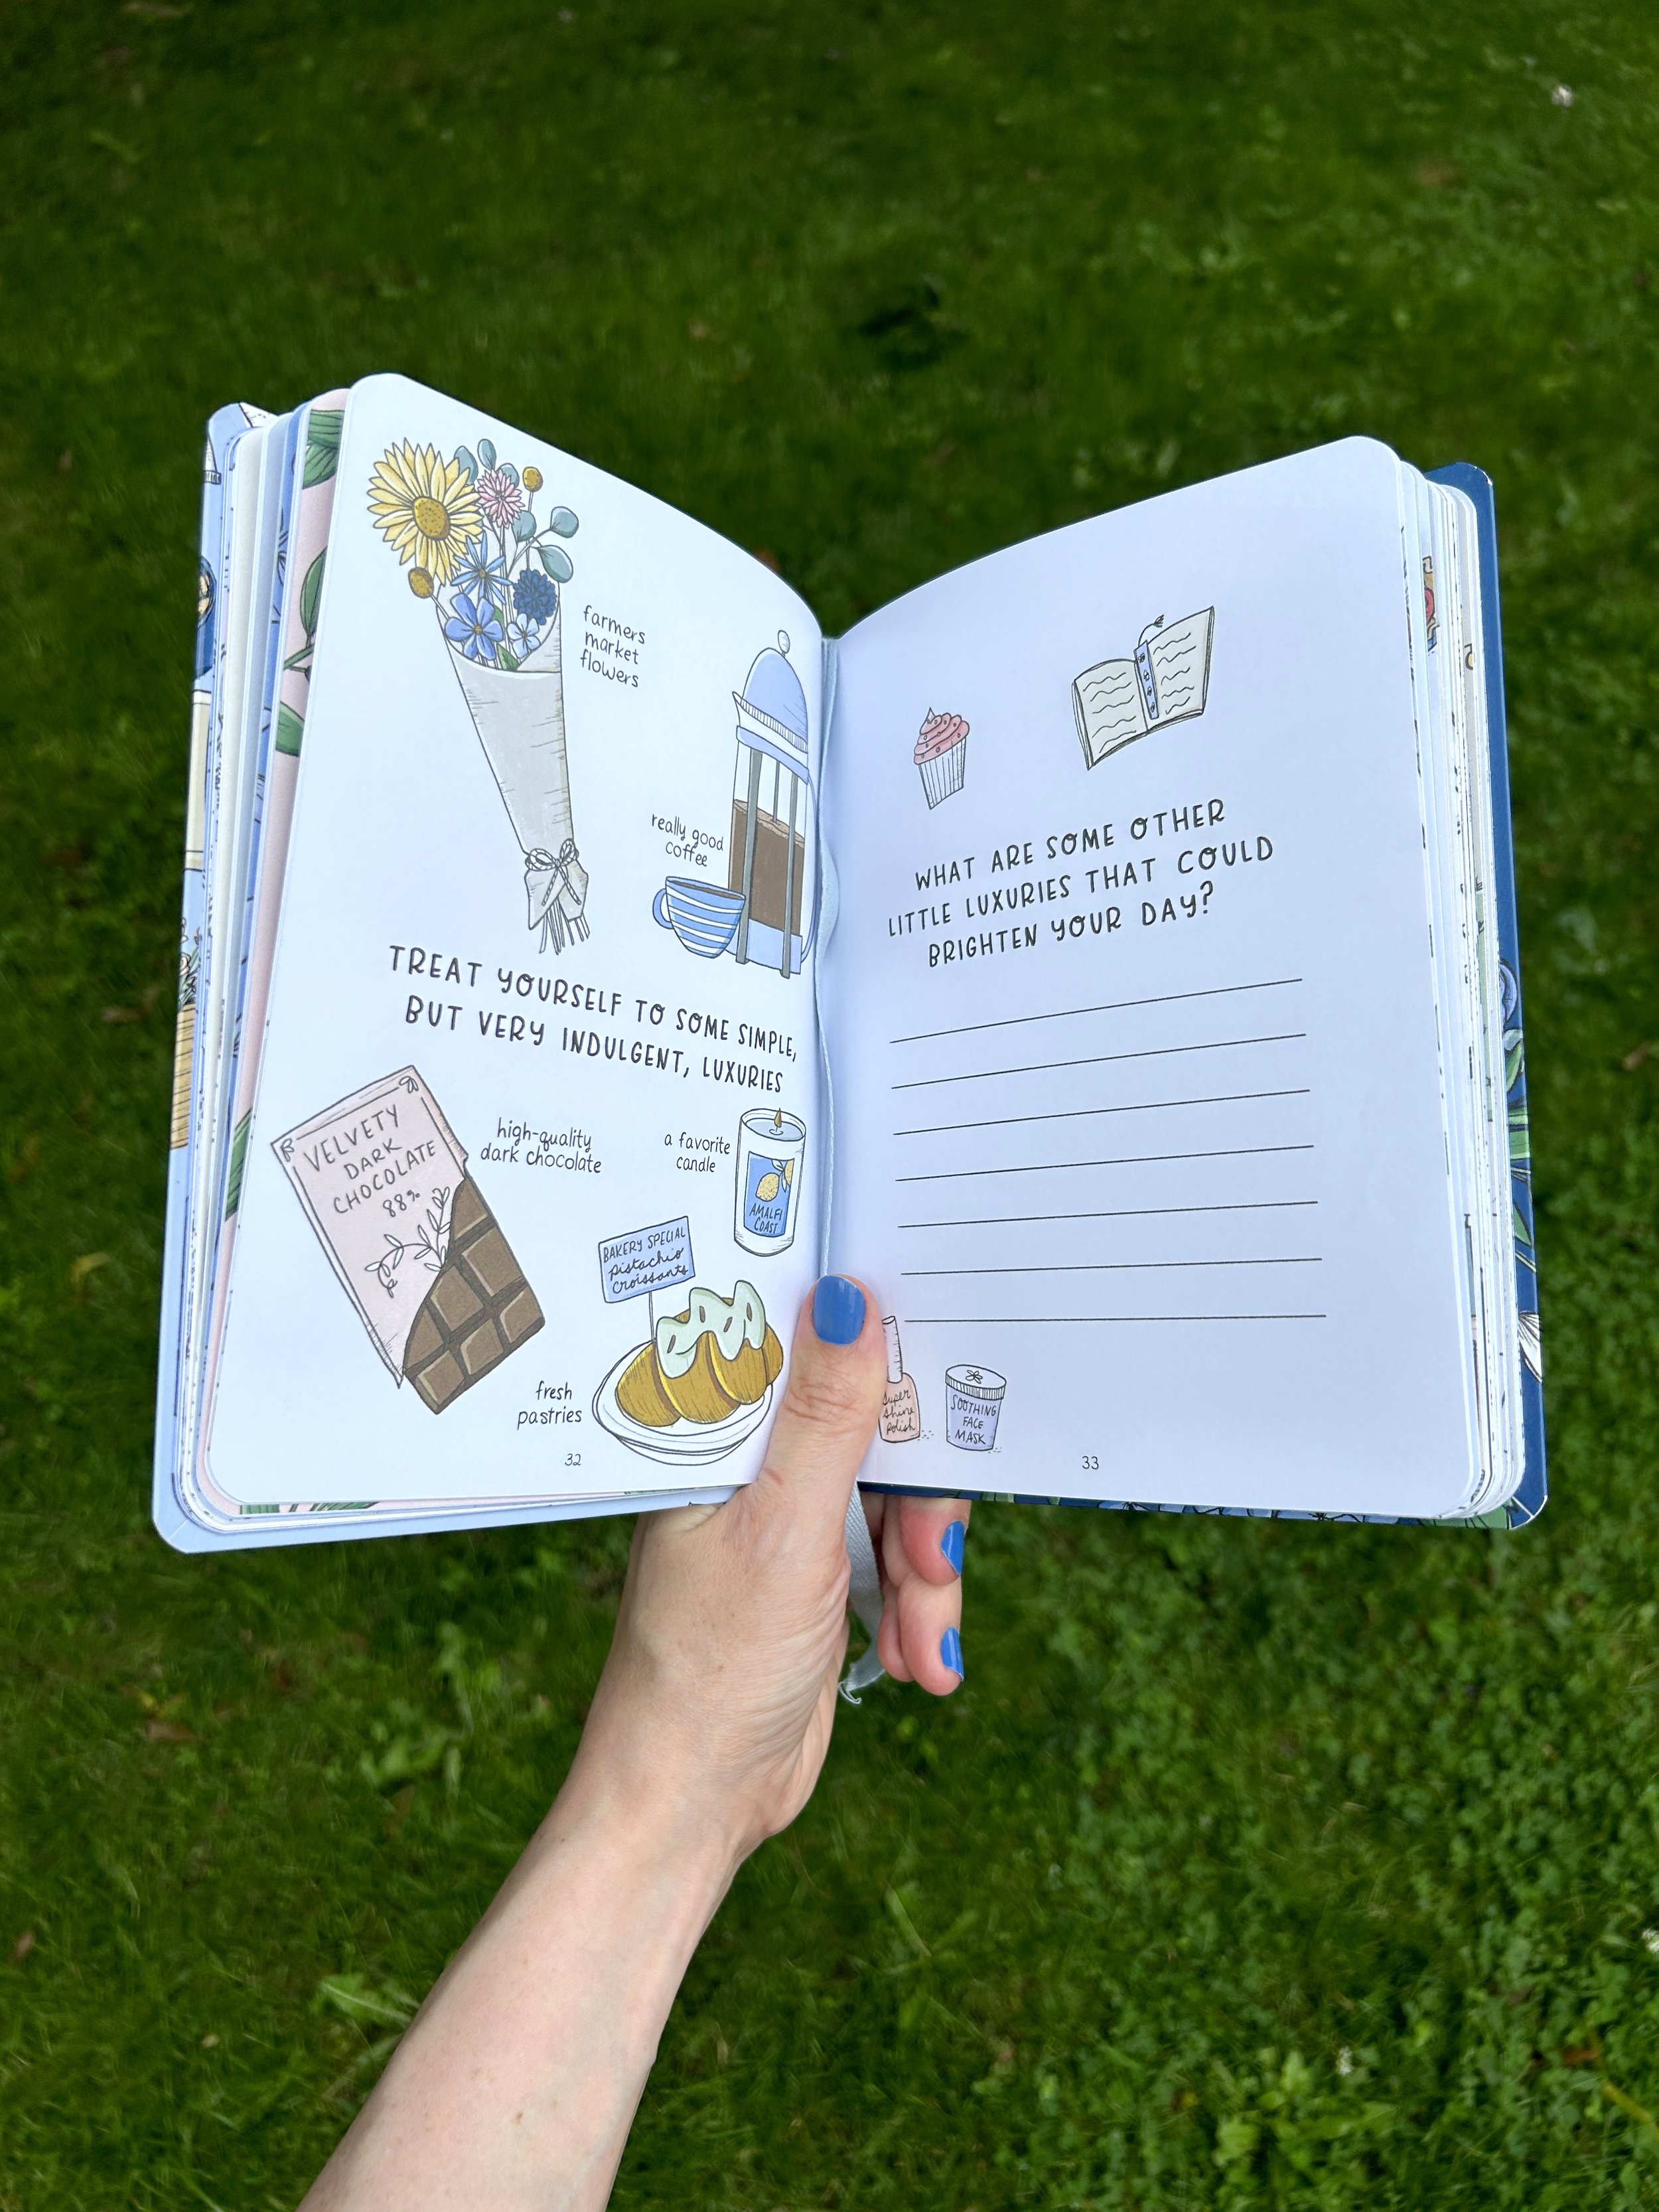 farmers
market
flowers
really good
coffee
TREAT YOURSELF TO SOME SIMPLE,
BUT VERY INDULGENT, LUXURIES
VELVETY
DARK
CHOCOLATE
88%
high-quality
dark chocolate
a favorite
candle
AMALFI
COAST
BAKERY SPECIAL
pistachio
croissants
fresh
pastries
32
WHAT ARE SOME OTHER
LITTLE LUXURIES THAT COULD
BRIGHTEN YOUR DAY?
super
shine
polish
SOOTHING
FACE
MASK
33